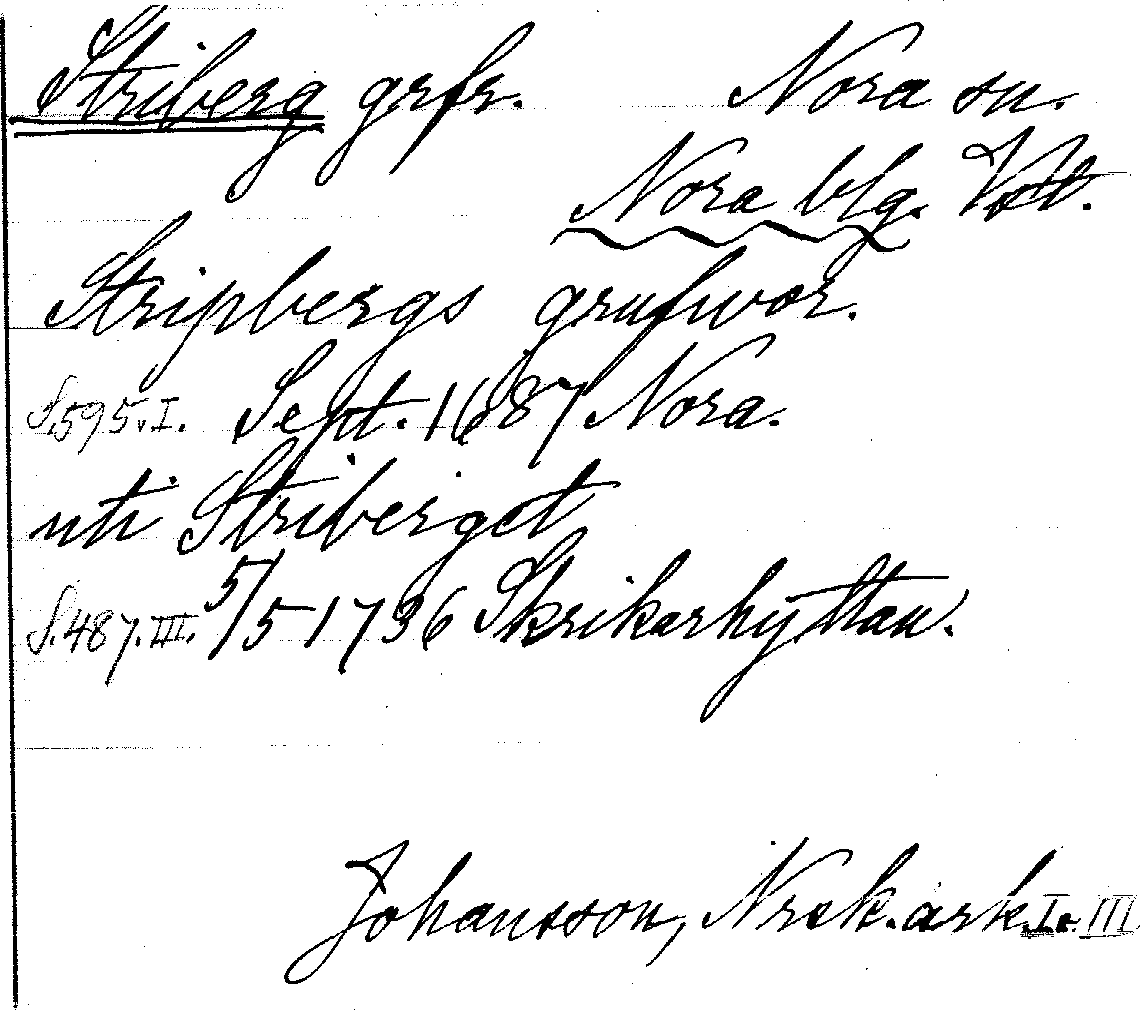 Striberg grfr. Nora sn.
Nora blg. Vstl.
Stripbergs grufwor.
S.595.I. Sept. 1687 Nora.
uti Striberget
S.487.III. 5/5 1736 Skrikarhyttan.
Johansson, Nrsk. ark. I o. III